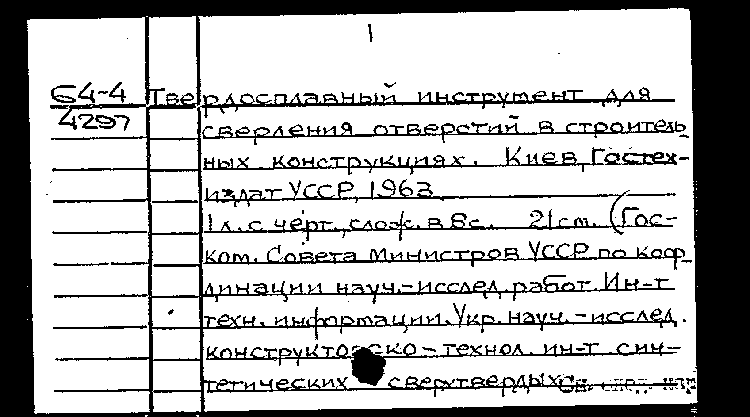 1
64-4 Твердосплавный инструмент для
4297 сверления отверстий в строитель
ных конструкциях. Киев, Гостех-
издат УССР, 1963
1 л. с черт., слож. в 8 с. 21 cm. (Гос-
ком. Совета Министров УССР по коор
динации науч.-исслед. работ. Ин-т
техн. информации. Укр. науч.-исслед.
конструкторско-технол. ин-т син-
тетических сверхтвердых См. след. кар